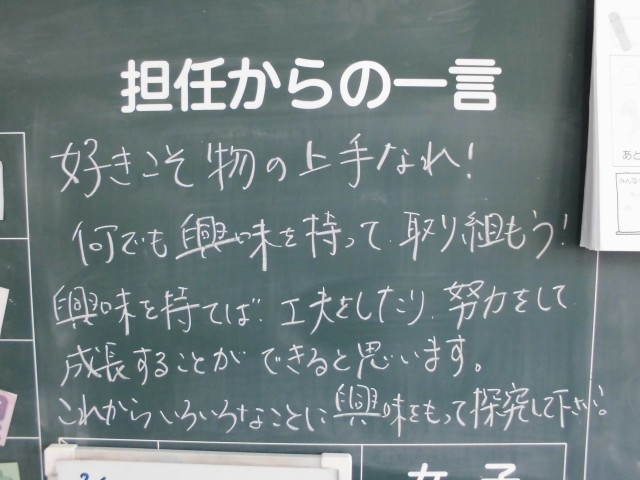 担任からの一言
好きこそ物の上手なれ!
何でも興味を持って、取り組もう!
興味を持てば、工夫をしたり、努力をして
成長することができると思います。
これからいろいろなことに興味をもって探究して下さい!
女子
あと